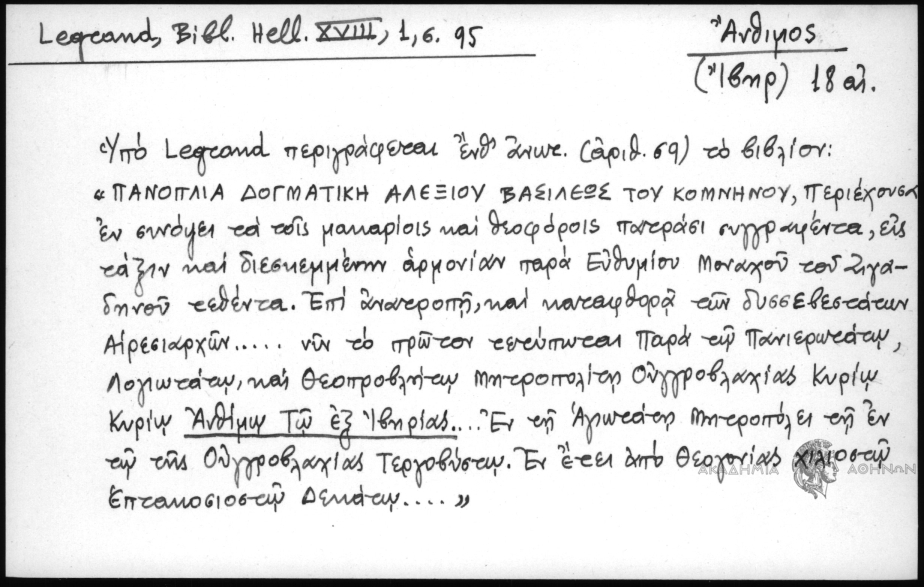 Legrand, Bibl. Hell. XVIII, 1, σ. 95
Ἄνθιμος
(Ἴβηρ) 18 αἰ.
Ὑπό Legrand περιγράφεται ἔνθ' ἄνωτ. (ἀριθ. 69) τό βιβλίον:
« ΠΑΝΟΠΛΙΑ ΔΟΓΜΑΤΙΚΗ ΑΛΕΞΙΟΥ ΒΑΣΙΛΕΩΣ ΤΟΥ ΚΟΜΝΗΝΟΥ, Περιέχουσα
ἐν συνόψει τά τοῖς μακαρίοις καί θεοφόροις πατράσι συγγραφέντα, εἰς
τάξιν καί διεσκεμμένην ἁρμονίαν παρά Εὐθυμίου Μοναχοῦ τοῦ Ζιγα-
δηνοῦ τεθέντα. Ἐπί ἀνατροπῇ, καί καταφθορᾷ τῶν δυσσεβεστάτων
Αἱρεσιαρχῶν..... νῦν τό πρῶτον τετύπωται Παρά τῷ Πανιερωτάτῳ,
Λογιωτάτῳ, καί Θεοπροβλήτῳ Μητροπολίτῃ Οὐγγροβλαχίας Κυρίῳ
Κυρίῳ Ἀνθίμῳ Τῷ ἐξ Ἰβηρίας.... Ἐν τῇ Ἁγιωτάτῃ Μητροπόλει τῇ ἐν
τῷ τῆς Οὐγγροβλαχίας Τεργοβύστῳ. Ἐν ἔτει ἀπό Θεολογίας χιλιοστῷ
ἑπτακοσιοστῷ Δεκάτῳ.... »
ΑΚΑΔΗΜΙΑ ΑΘΗΝΩΝ